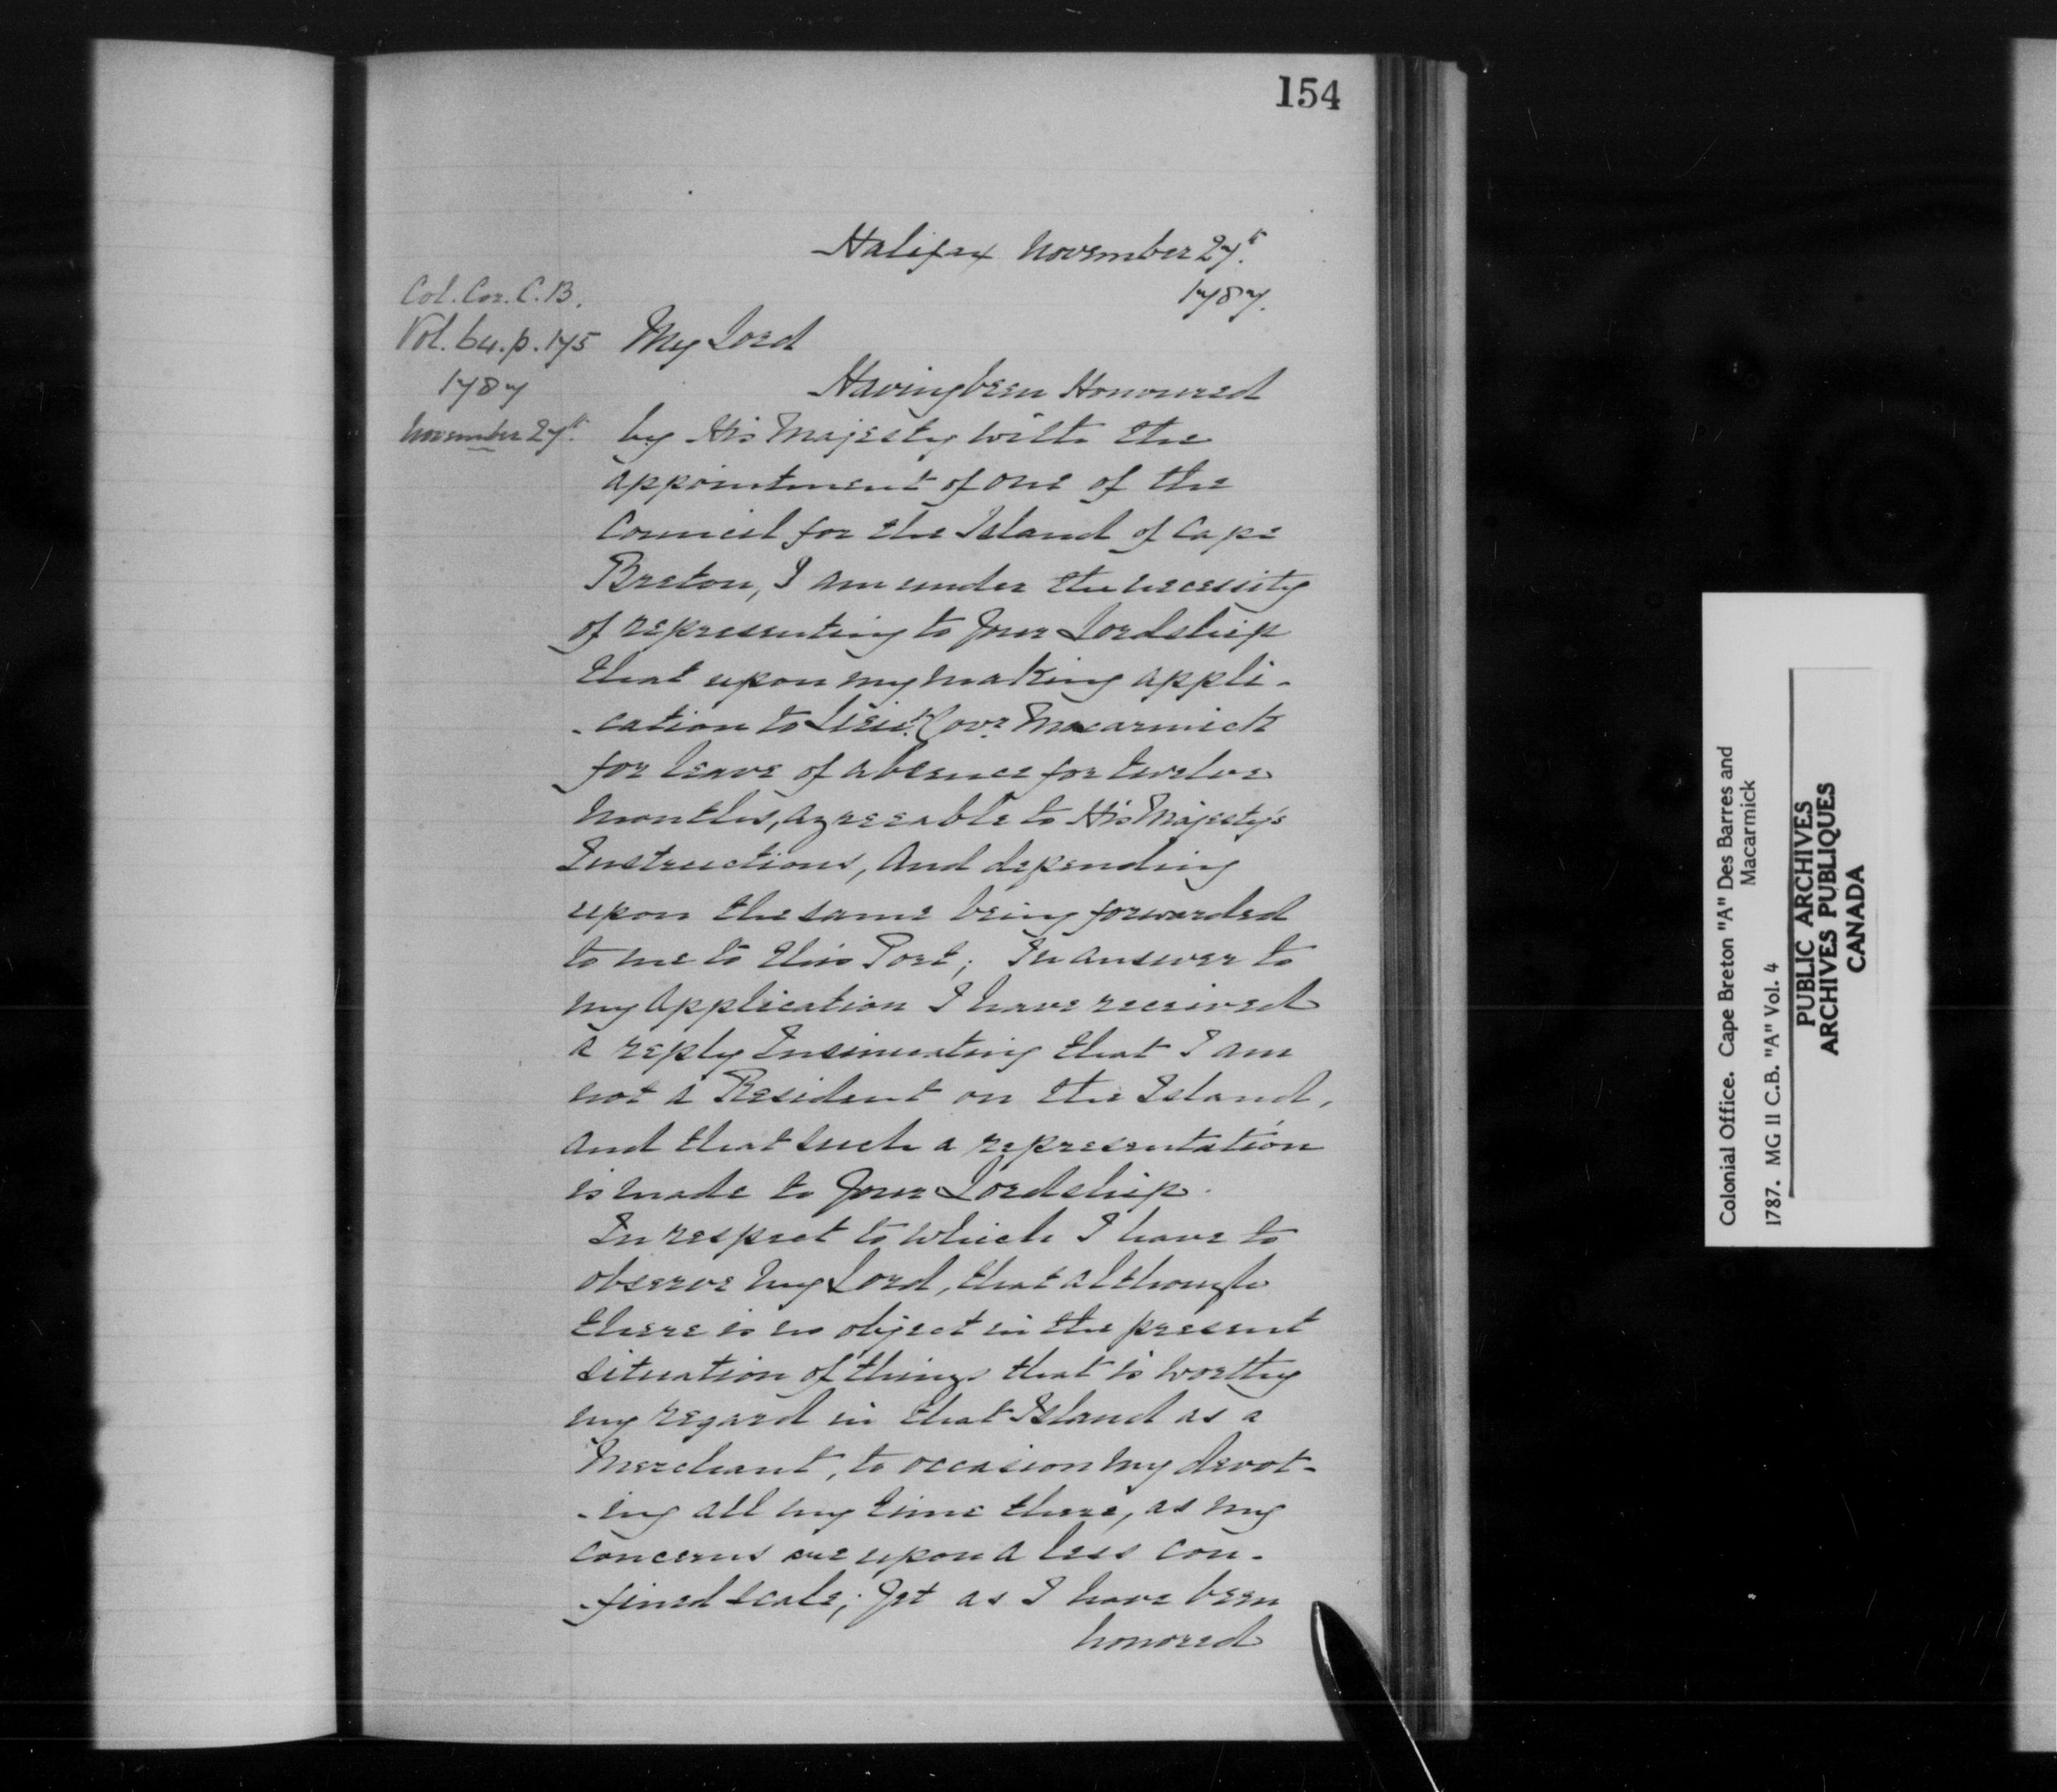 154
Halifax November 27th.
1787.
Col. Cor. C.B.
Vol. 64. p. 175
1787
November 27th.
My Lord
Having been Honoured
by His Majesty with the
appointment of one of the
Council for the Island of Cape
Breton, I am under the necessity
of representing to Your Lordship
that upon my making appli-
-cation to Lieut. Govr. Macarmick
for leave of absence for twelve
months, agreeable to His Majesty's
Instructions, and depending
upon the same being forwarded
to me to this Port; In answer to
my application I have received
a reply Insinuating that I am
not a Resident on the Island,
and that such a representation
is made to Your Lordship.
In respect to which I have to
observe my Lord, that although
there is no object in the present
situation of things that is worthy
my regard in that Island as a
Merchant, to occasion my devot-
-ing all my time there, as my
concerns are upon a less con-
-fined scale; Yet as I have been
honored
Colonial Office. Cape Breton "A" Des Barres and
Macarmick
1787. MG 11 C.B. "A" Vol. 4
PUBLIC ARCHIVES
ARCHIVES PUBLIQUES
CANADA